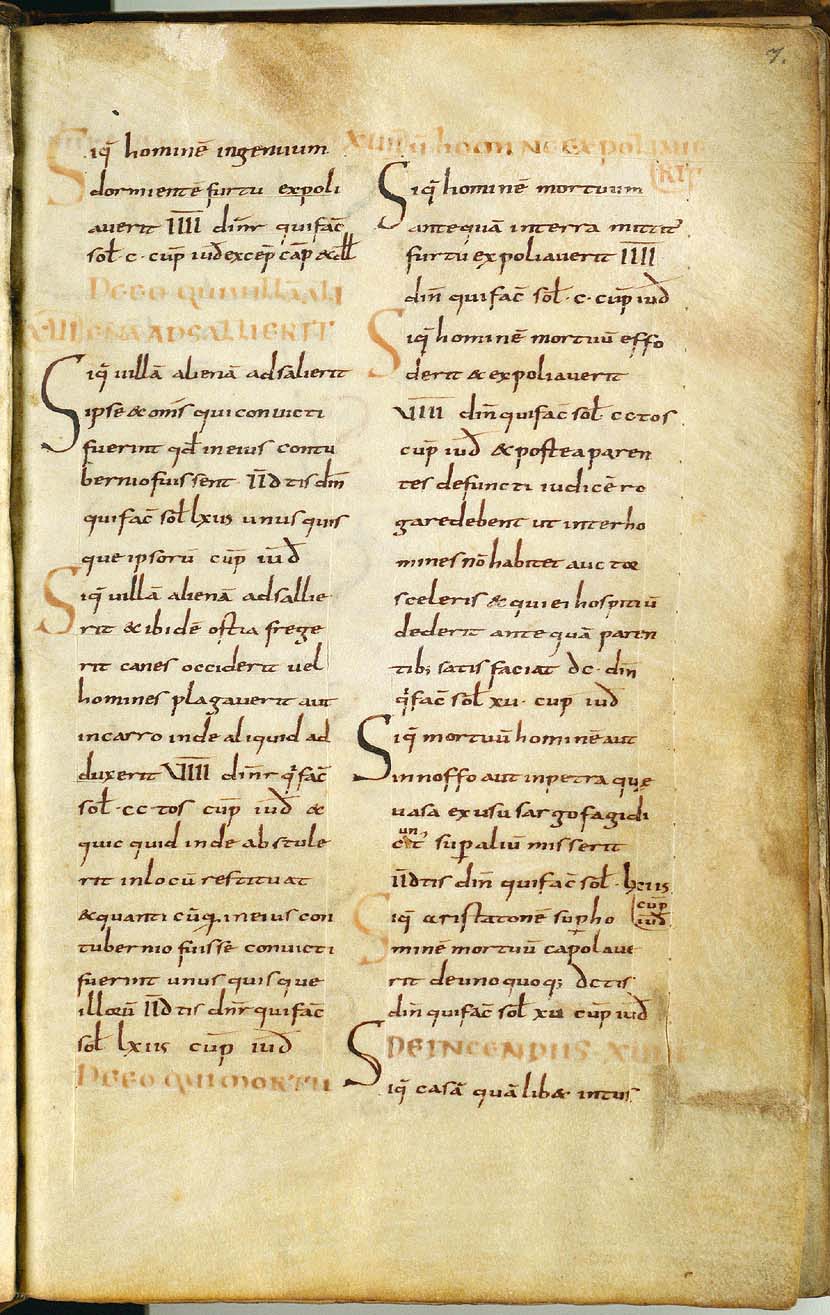 7.
Siq̄ hominē ingenuum
dormientē furtu expoli
auerit IIII dinr̄ qui fac̄
sol̄ · c · cup̄ iud̄ excep̄ cap̄ & dl̄
De eo qui uillā ali
XIIII ena adsallierit
Siq̄ uillā alienā adsalierit
ipse & om̄s qui conuicti
fuerint qd̄ in eius contu
bernio fuissent II dtis din̄
qui fac̄ sol̄ lxiis unus quis
que ipsorū cup̄ iud̄
Siq̄ uillā alienā adsallie
rit & ibidē ostia frege
rit canes occiderit uel
homines plagauerit aut
in carro inde aliquid ad
duxerit VIIII dinr̄ q̄ fac̄
sol̄ · cc · tos cup̄ iud̄ &
quic quid inde abstule
rit in locū restituat
& quanti cūq̨ in eius con
tubernio fuissē conuicti
fuerint unus quis que
illorū II dtis dinr̄ qui fac̄
sol̄ lxiis cup̄ iud̄
De eo qui mortu
ū homine expoliaue
rit
Siq̄ hominē mortuum
antequā in terra mittit᾽
furtū expoliauerit IIII
din̄ qui fac̄ sol̄ · c · cup̄ iud̄
Siq̄ hominē mortuū effo
derit & expoliauerit
VIIII din̄ qui fac̄ sol̄ · cc tos
cup̄ iud̄ & postea paren
tes defuncti iudicē ro
gare debent ut inter ho
mines nō habitet auctor
sceleris & qui ei hospitiū
dederit ante quā paren
tib; satis faciat dc · din̄
q̄ fac̄ sol̄ xu · cup̄ iud̄
Siq̄ mortuū hominē aut
in noffo aut in petra que
uasa ex usu sargofagi di
cun̄t᾽ sup̄ aliū misserit
II dtis din̄ qui fac̄ sol̄ · lxiis
cup̄ iud̄
Siq̄ aristatonē sup̄ ho
minē mortuū capolaue
rit de uno quoq; dctis
din̄ qui fac̄ sol̄ xu cup̄ iud̄
De incendiis
Siq̄ casā quā lib& intus